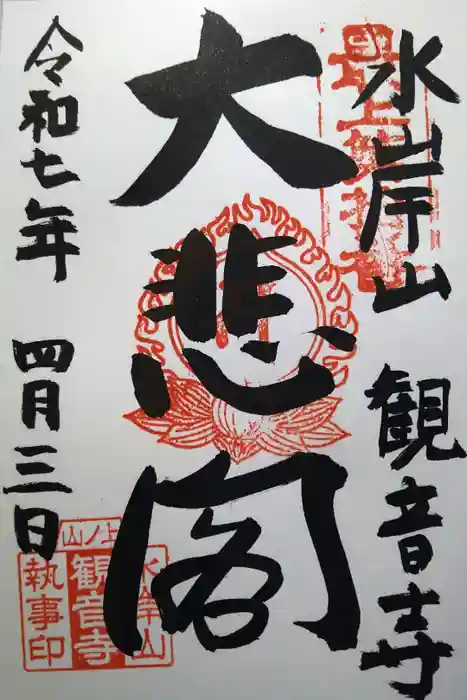 水岸山 観音寺
大悲閣
令和七年 四月三日
上ノ山
水岸山
観音寺
執事印